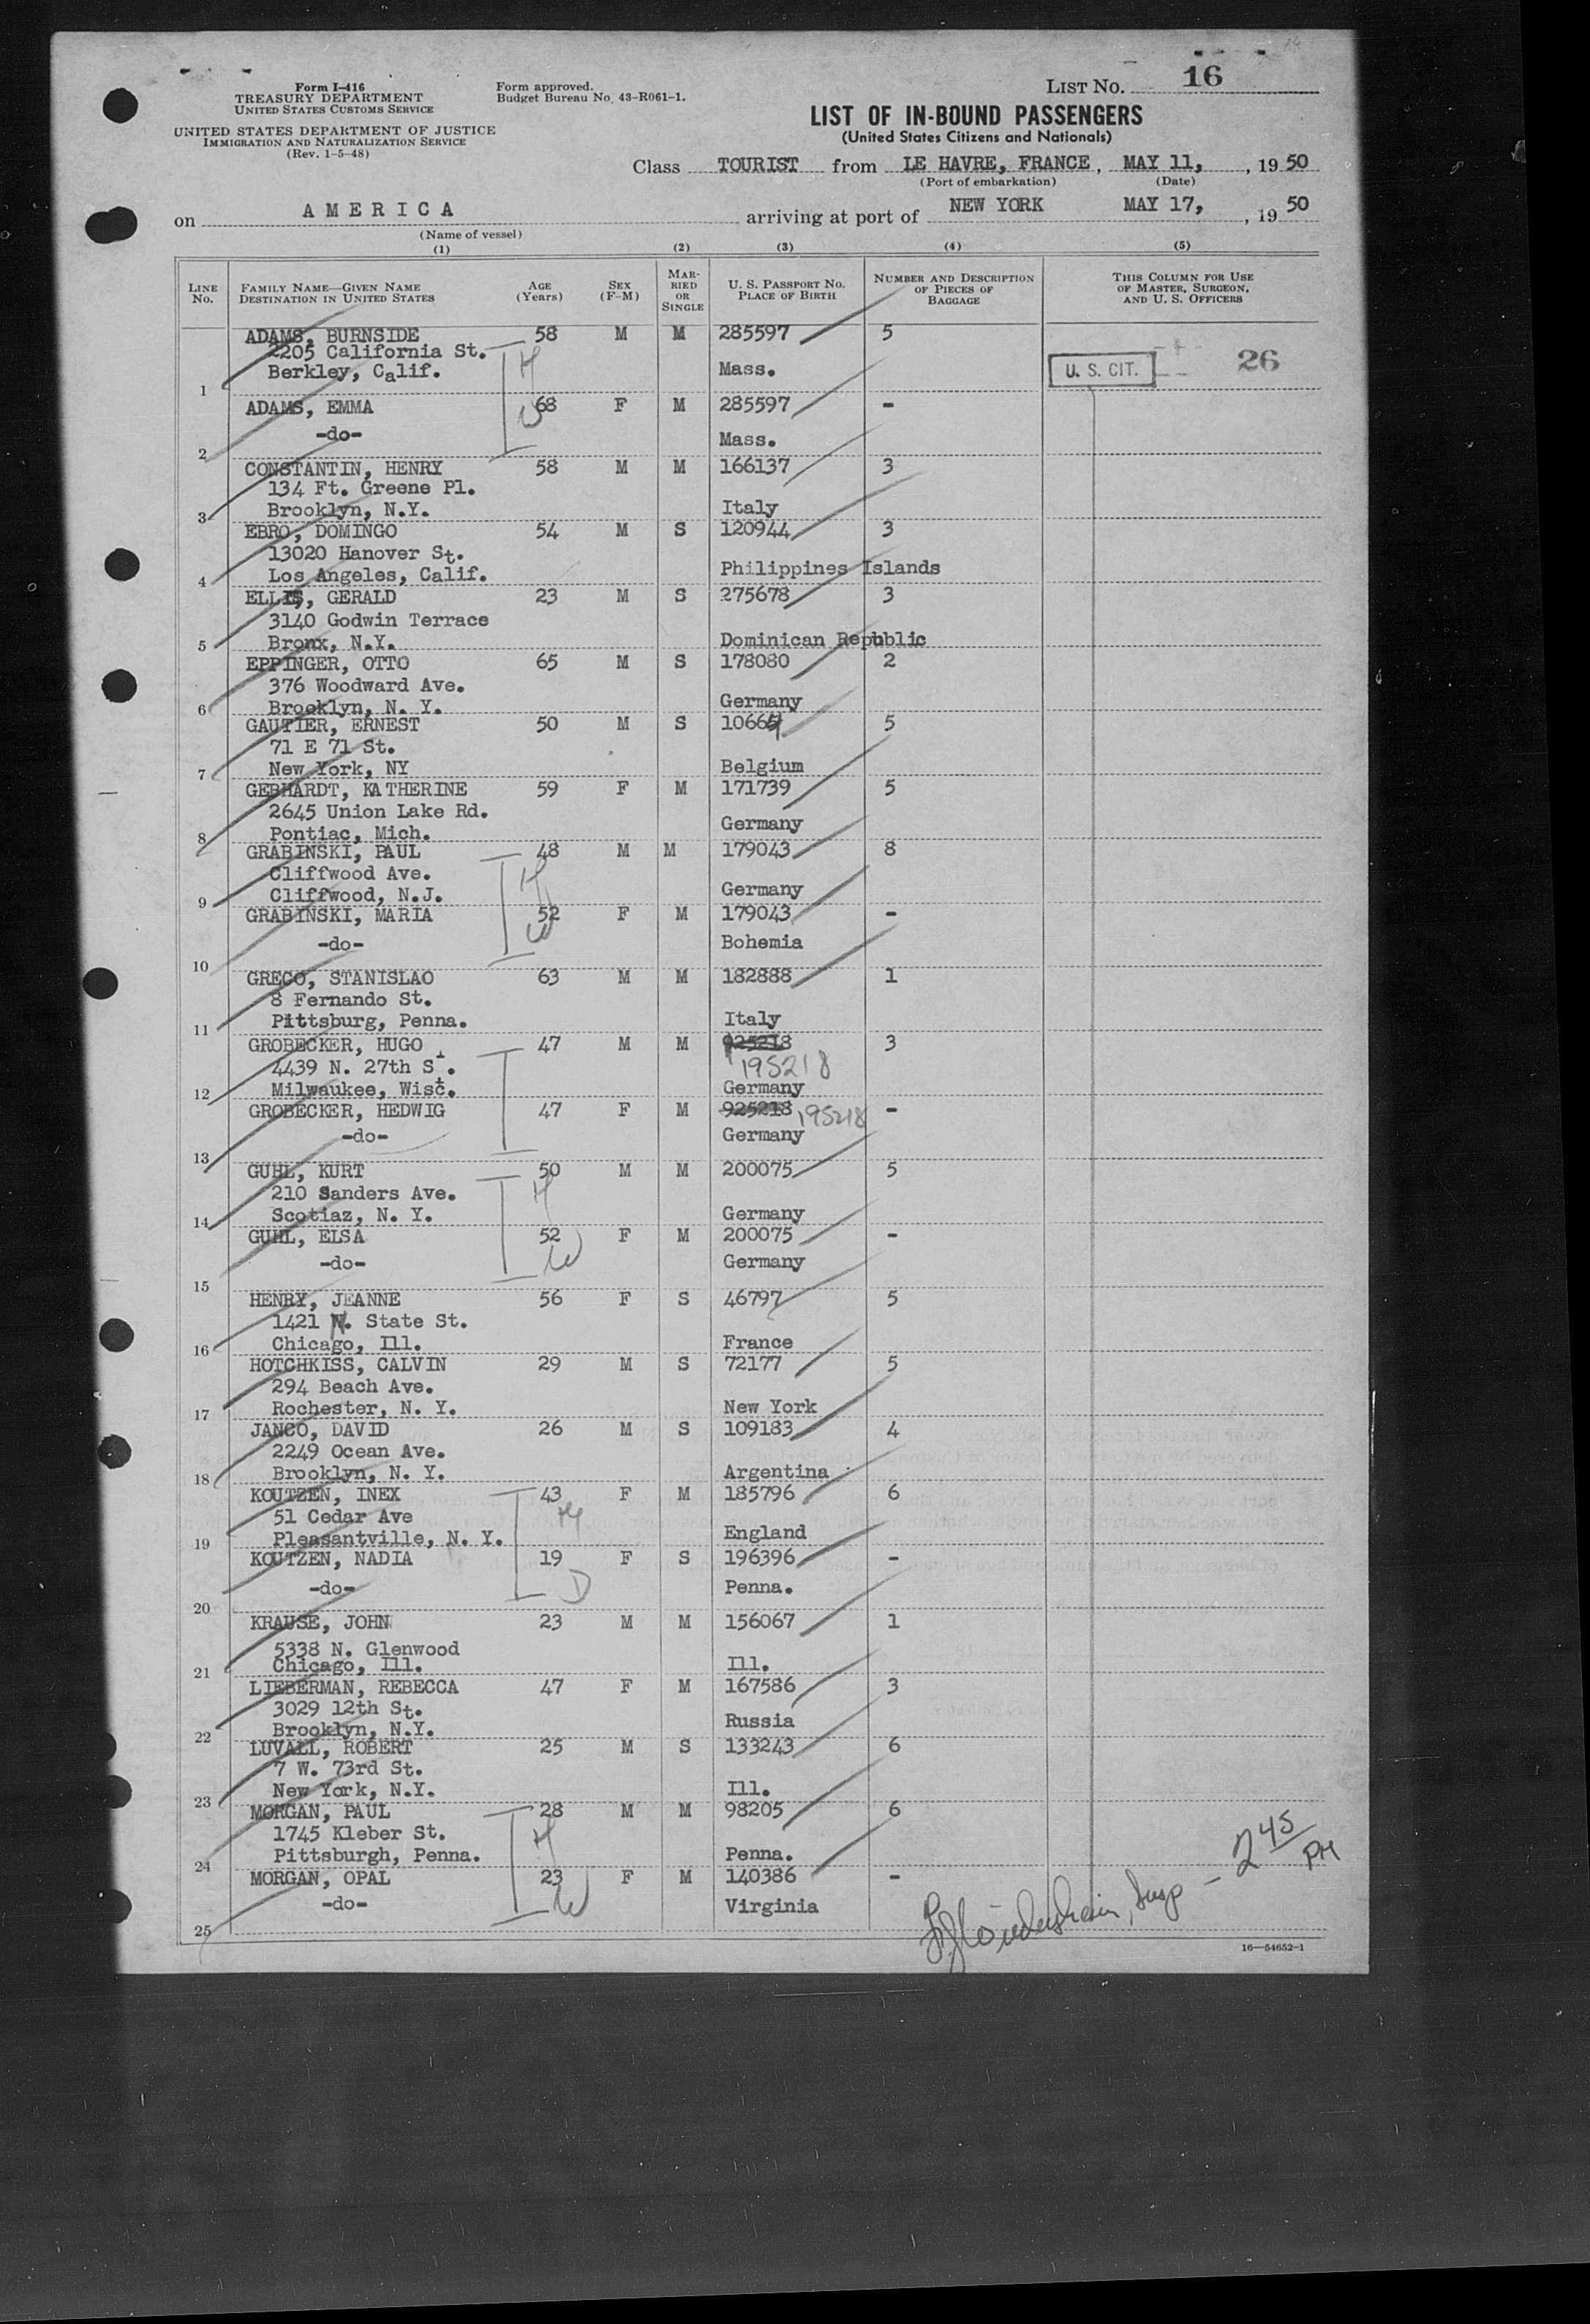 Form I-416
TREASURY DEPARTMENT
UNITED STATES CUSTOMS SERVICE
UNITED STATES DEPARTMENT OF JUSTICE
IMMIGRATION AND NATURALIZATION SERVICE
(Rev. 1-5-48)
Form approved.
Budget Bureau No. 43-R061-1.
LIST NO. 16
LIST OF IN-BOUND PASSENGERS
(United States Citizens and Nationals)
Class TOURIST from LE HAVRE, FRANCE, MAY 11, , 19 50
(Port of embarkation) (Date)
on AMERICA arriving at port of NEW YORK MAY 17, , 19 50
(Name of vessel)
(1) (2) (3) (4) (5)
LINE NO. FAMILY NAME—GIVEN NAME DESTINATION IN UNITED STATES AGE (Years) SEX (F-M) MARRIED OR SINGLE U. S. PASSPORT NO. PLACE OF BIRTH NUMBER AND DESCRIPTION OF PIECES OF BAGGAGE THIS COLUMN FOR USE OF MASTER, SURGEON, AND U. S. OFFICERS
ADAMS, BURNSIDE 58 M M 285597 5
2205 California St. H
Berkley, Calif. Mass. U. S. CIT. 26
1
ADAMS, EMMA 68 F M 285597 -
-do- W Mass.
2
CONSTANTIN, HENRY 58 M M 166137 3
134 Ft. Greene Pl.
3 Brooklyn, N.Y. Italy
EBRO, DOMINGO 54 M S 120944 3
13020 Hanover St.
4 Los Angeles, Calif. Philippines Islands
ELLIS, GERALD 23 M S 275678 3
3140 Godwin Terrace
5 Bronx, N.Y. Dominican Republic
EPPINGER, OTTO 65 M S 178080 2
376 Woodward Ave.
6 Brooklyn, N. Y. Germany
GAUTIER, ERNEST 50 M S 5
71 E 71 St.
7 New York, NY Belgium
GEBHARDT, KATHERINE 59 F M 171739 5
2645 Union Lake Rd.
8 Pontiac, Mich. Germany
GRABINSKI, PAUL 48 M M 179043 8
Cliffwood Ave. H
9 Cliffwood, N.J. Germany
GRABINSKI, MARIA 52 F M 179043 -
-do- W Bohemia
10
GRECO, STANISLAO 63 M M 182888 1
8 Fernando St.
11 Pittsburg, Penna. Italy
GROBECKER, HUGO 47 M M 925218 3
4439 N. 27th St. 195218
12 Milwaukee, Wisc. Germany
GROBECKER, HEDWIG 47 F M 925218 195218 -
-do- Germany
13
GUHL, KURT 50 M M 200075 5
210 Sanders Ave. H
14 Scotiaz, N. Y. Germany
GUHL, ELSA 52 F M 200075 -
-do- W Germany
15
HENRY, JEANNE 56 F S 46797 5
1421 N. State St.
16 Chicago, Ill. France
HOTCHKISS, CALVIN 29 M S 72177 5
294 Beach Ave.
17 Rochester, N. Y. New York
JANCO, DAVID 26 M S 109183 4
2249 Ocean Ave.
18 Brooklyn, N. Y. Argentina
KOUTZEN, INEX 43 F M 185796 6
51 Cedar Ave M
19 Pleasantville, N. Y. England
KOUTZEN, NADIA 19 F S 196396 -
-do- D Penna.
20
KRAUSE, JOHN 23 M M 156067 1
5338 N. Glenwood
21 Chicago, Ill. Ill.
LIEBERMAN, REBECCA 47 F M 167586 3
3029 12th St.
22 Brooklyn, N.Y. Russia
LUVALL, ROBERT 25 M S 133243 6
7 W. 73rd St.
23 New York, N.Y. Ill.
MORGAN, PAUL 28 M M 98205 6
1745 Kleber St. H
24 Pittsburgh, Penna. Penna.
MORGAN, OPAL 23 F M 140386 -
-do- W Virginia
25
Insp - 2 45 PM
16—54652-1